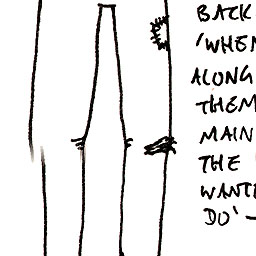 BACK
'WHEN
ALONG
THEM
MAIN
THE '
WANTE
DO' –